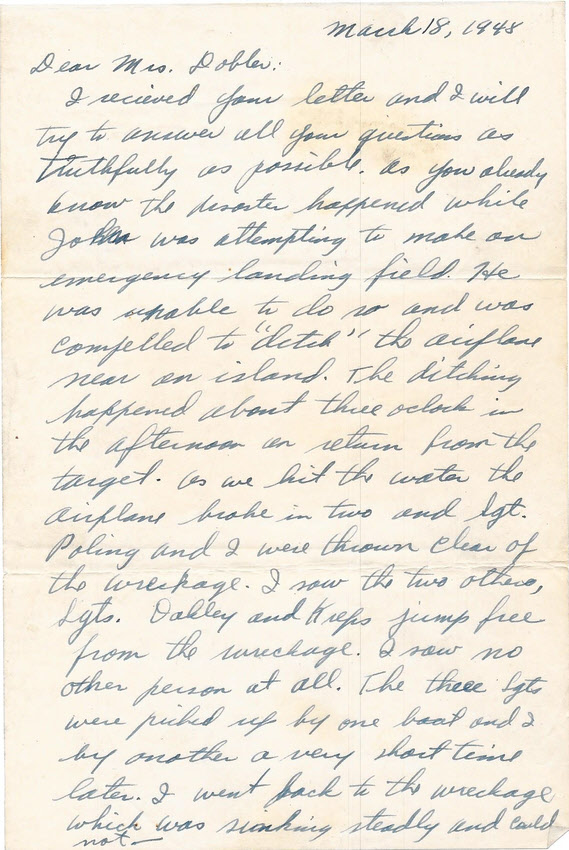 March 18, 1948
Dear Mrs. Dobler:
I recieved your letter and I will
try to answer all your questions as
truthfully as possible. As you already
know the disaster happened while
John was attempting to make an
emergency landing field. He
was unable to do so and was
compelled to "ditch" the airplane
near an island. The ditching
happened about three oclock in
the afternoon on return from the
target. As we hit the water the
airplane broke in two and Sgt.
Poling and I were thrown clear of
the wreckage. I saw the two others,
Sgts. Oakley and Kreps jump free
from the wreckage. I saw no
other person at all. The three Sgts
were picked up by one boat and I
by another a very short time
later. I went back to the wreckage
which was sinking steadily and could
not—